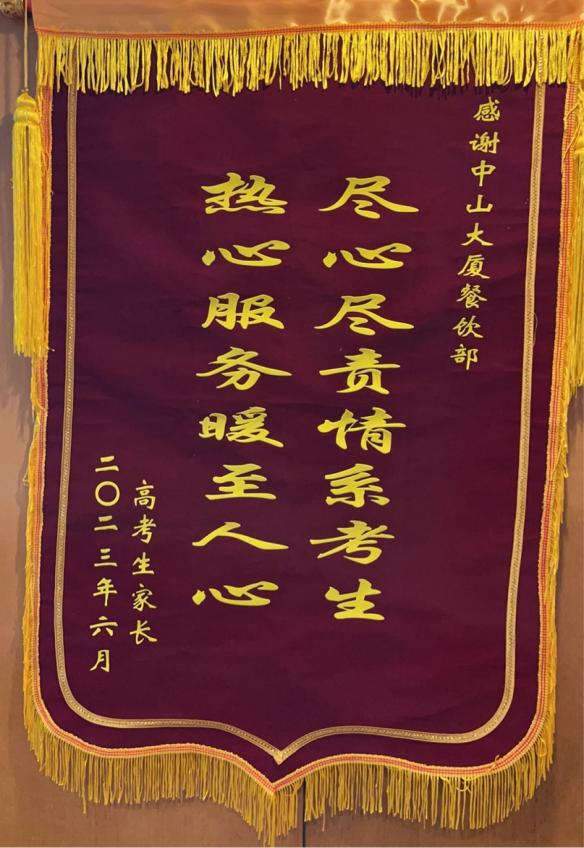 感谢中山大厦餐饮部
尽心尽责情系考生
热心服务暖至人心
高考生家长
二〇二三年六月